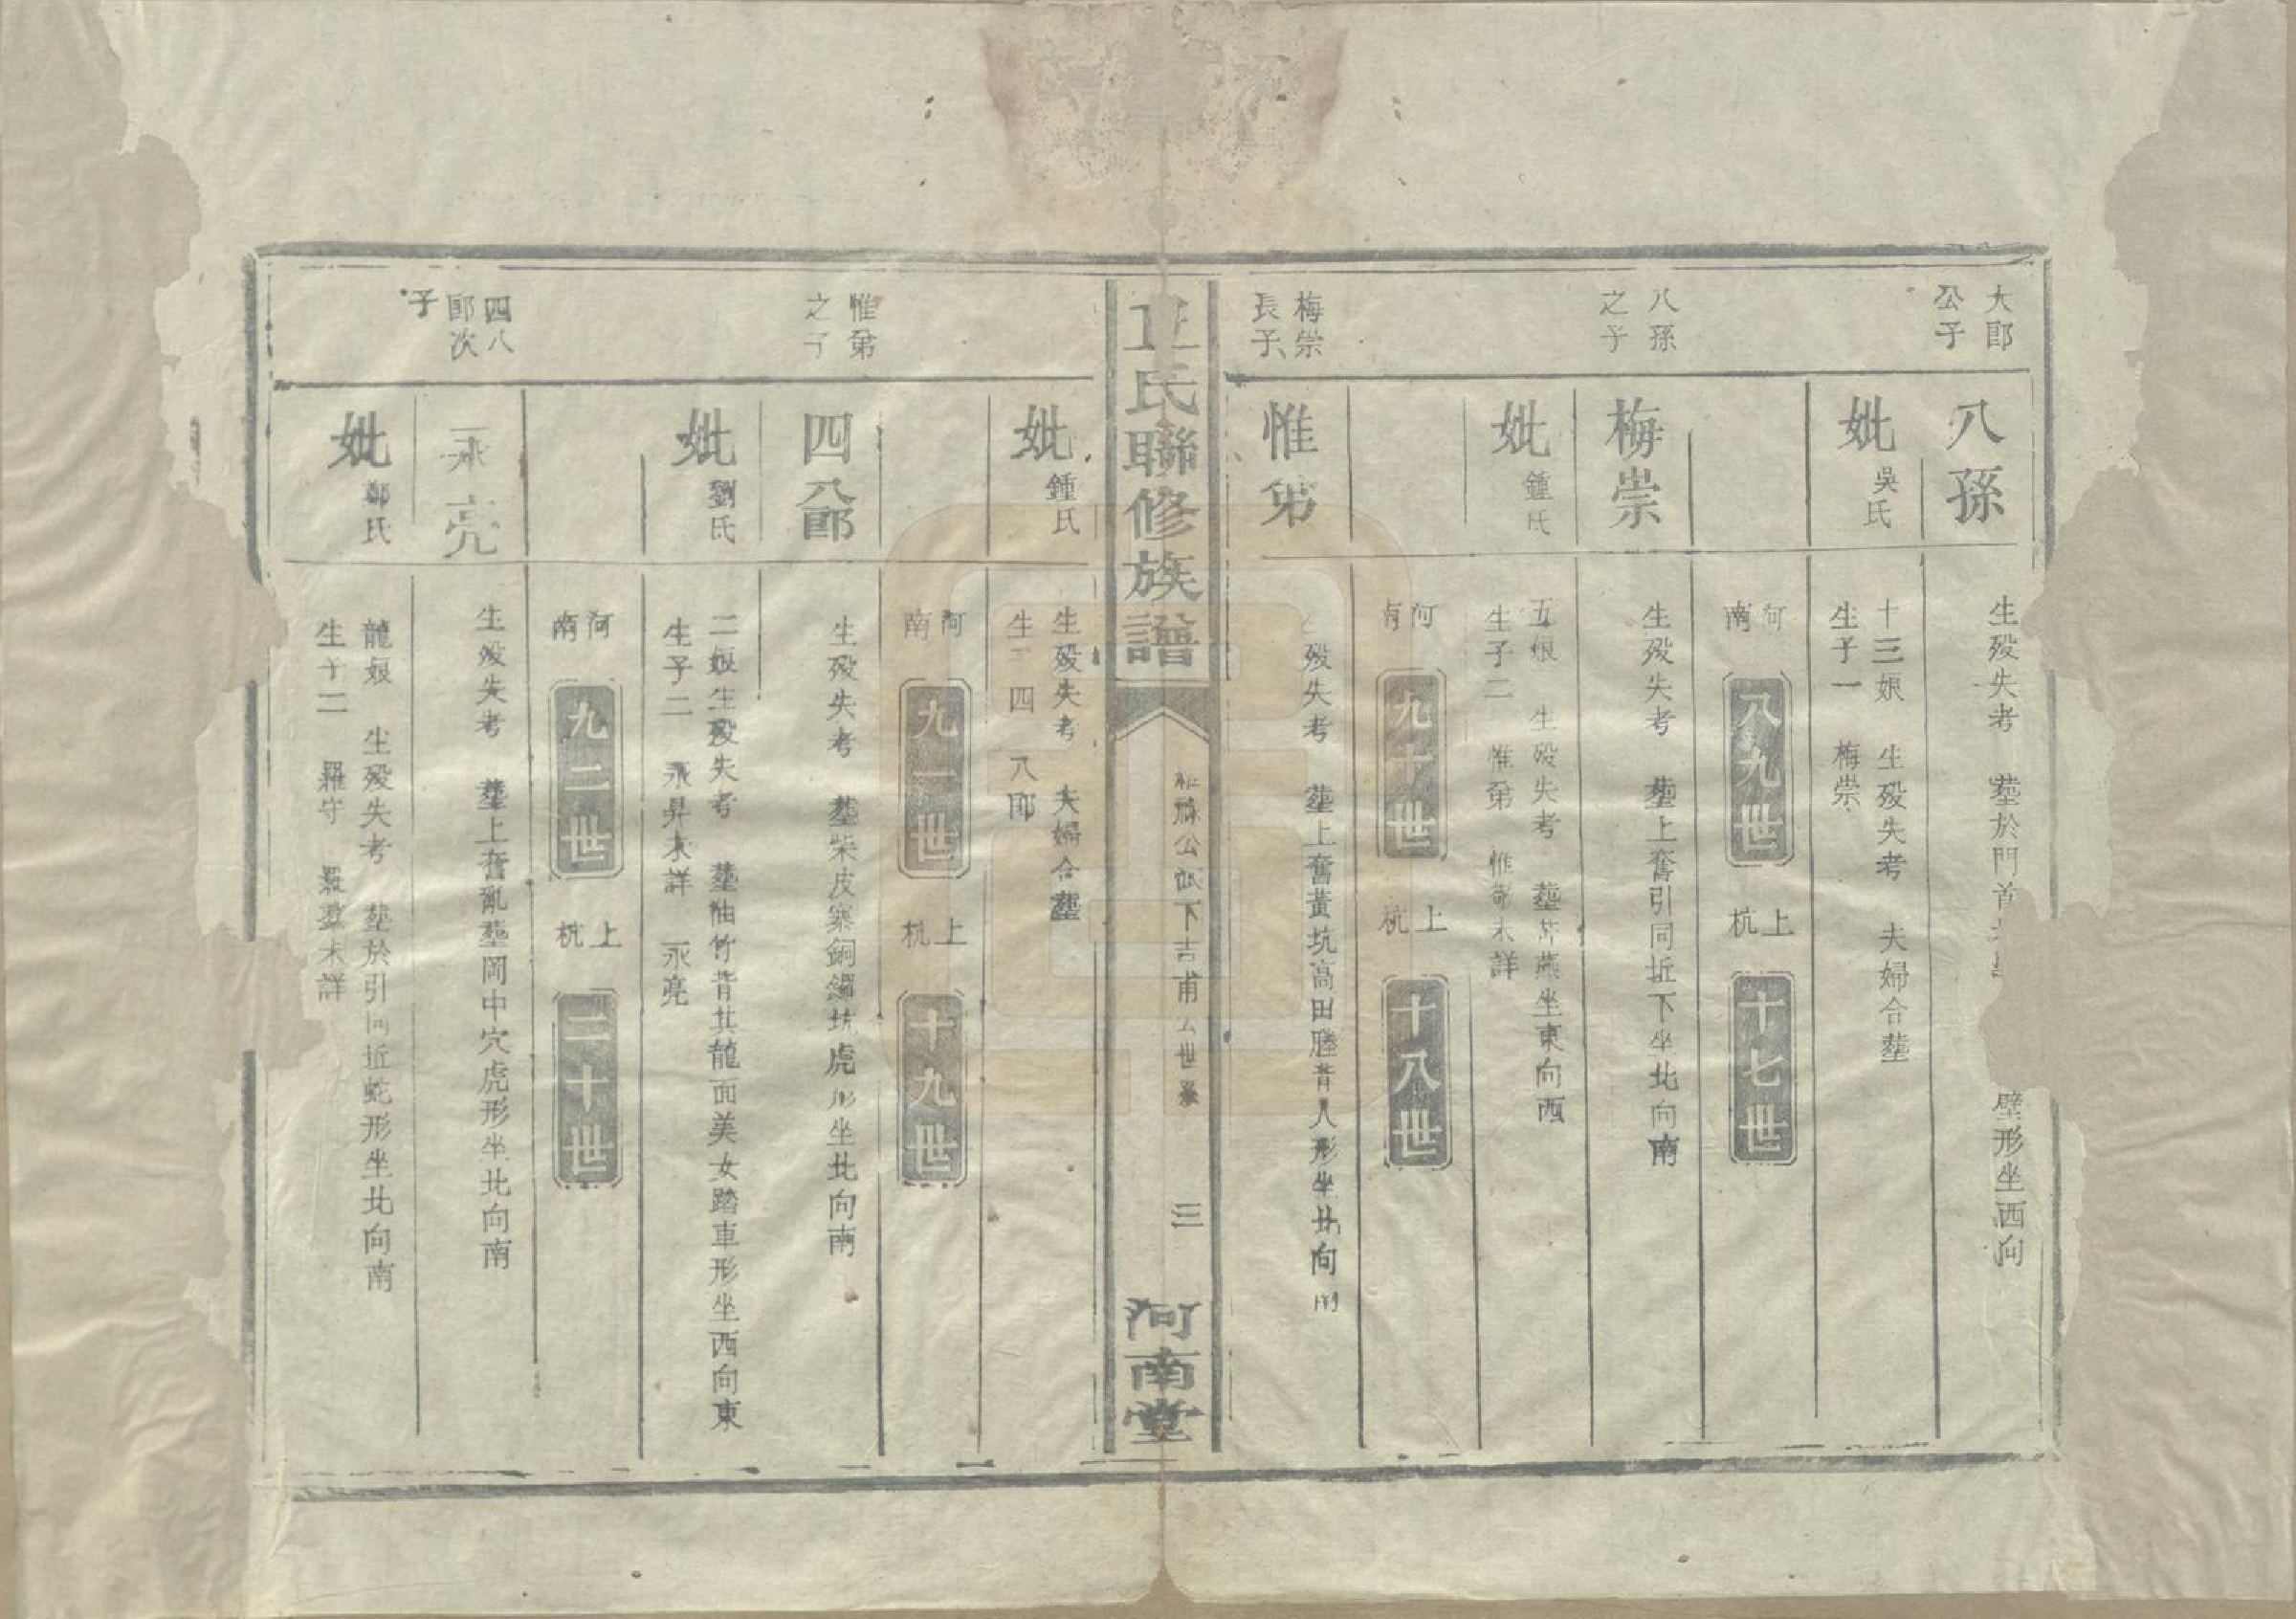 大郎
公子
八孫
生殁失考　塟於門首
壁形坐西向
妣吳氏
十三娘　生殁失考　夫婦合塟
生子一　梅崇
河南　八九世　上杭　十七世
八孫
之子
梅崇
生殁失考　塟上奮引同坵下坐北向南
妣鍾氏
五娘　生殁失考　塟　坐東向西
生子二　惟弟　惟　未詳
河南　九十世　上杭　十八世
梅崇
長子
惟弟
殁失考　塟上奮黃坑高田塍背人形坐北向
氏聯修族譜
公　下吉甫公世系
三
河南堂
妣鍾氏
生殁失考　夫婦合塟
生子　四八郎
河南　九一世　上杭　十九世
惟弟
之子
四八郎
生殁失考　塟柴皮寨銅鑼坑虎形坐北向南
妣劉氏
二娘生殁失考　塟油竹背北龍面美女踏車形坐西向東
生子二　永昇未詳　永亮
河南　九二世　上杭　二十世
四八
郎次
子
永亮
生殁失考　塟上奮亂塟岡中穴虎形坐北向南
妣鄭氏
龍娘　生殁失考　塟於引同坵蛇形坐北向南
生子二　羅守　未詳